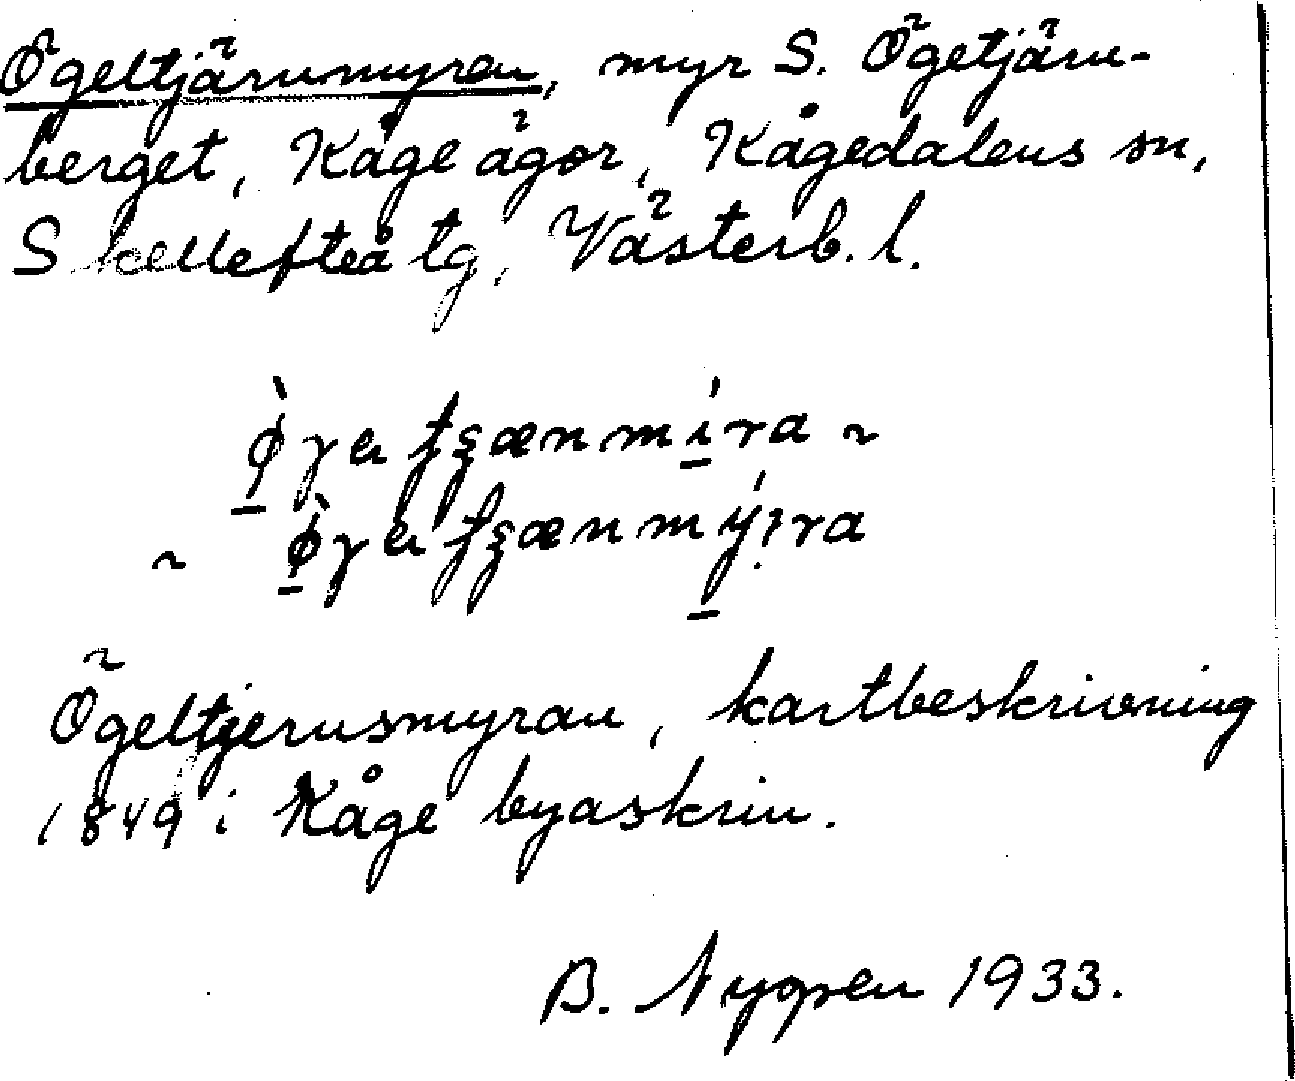 Ögeltjärnmyren, myr S. Ögetjärn-
berget, Kåge ägor, Kågedalens sn,
Skellefteå tg, Västerb. l.
Ögeltjernsmyran, kartbeskrivning
1849 i Kåge byaskrin.
B. Nygren 1933.